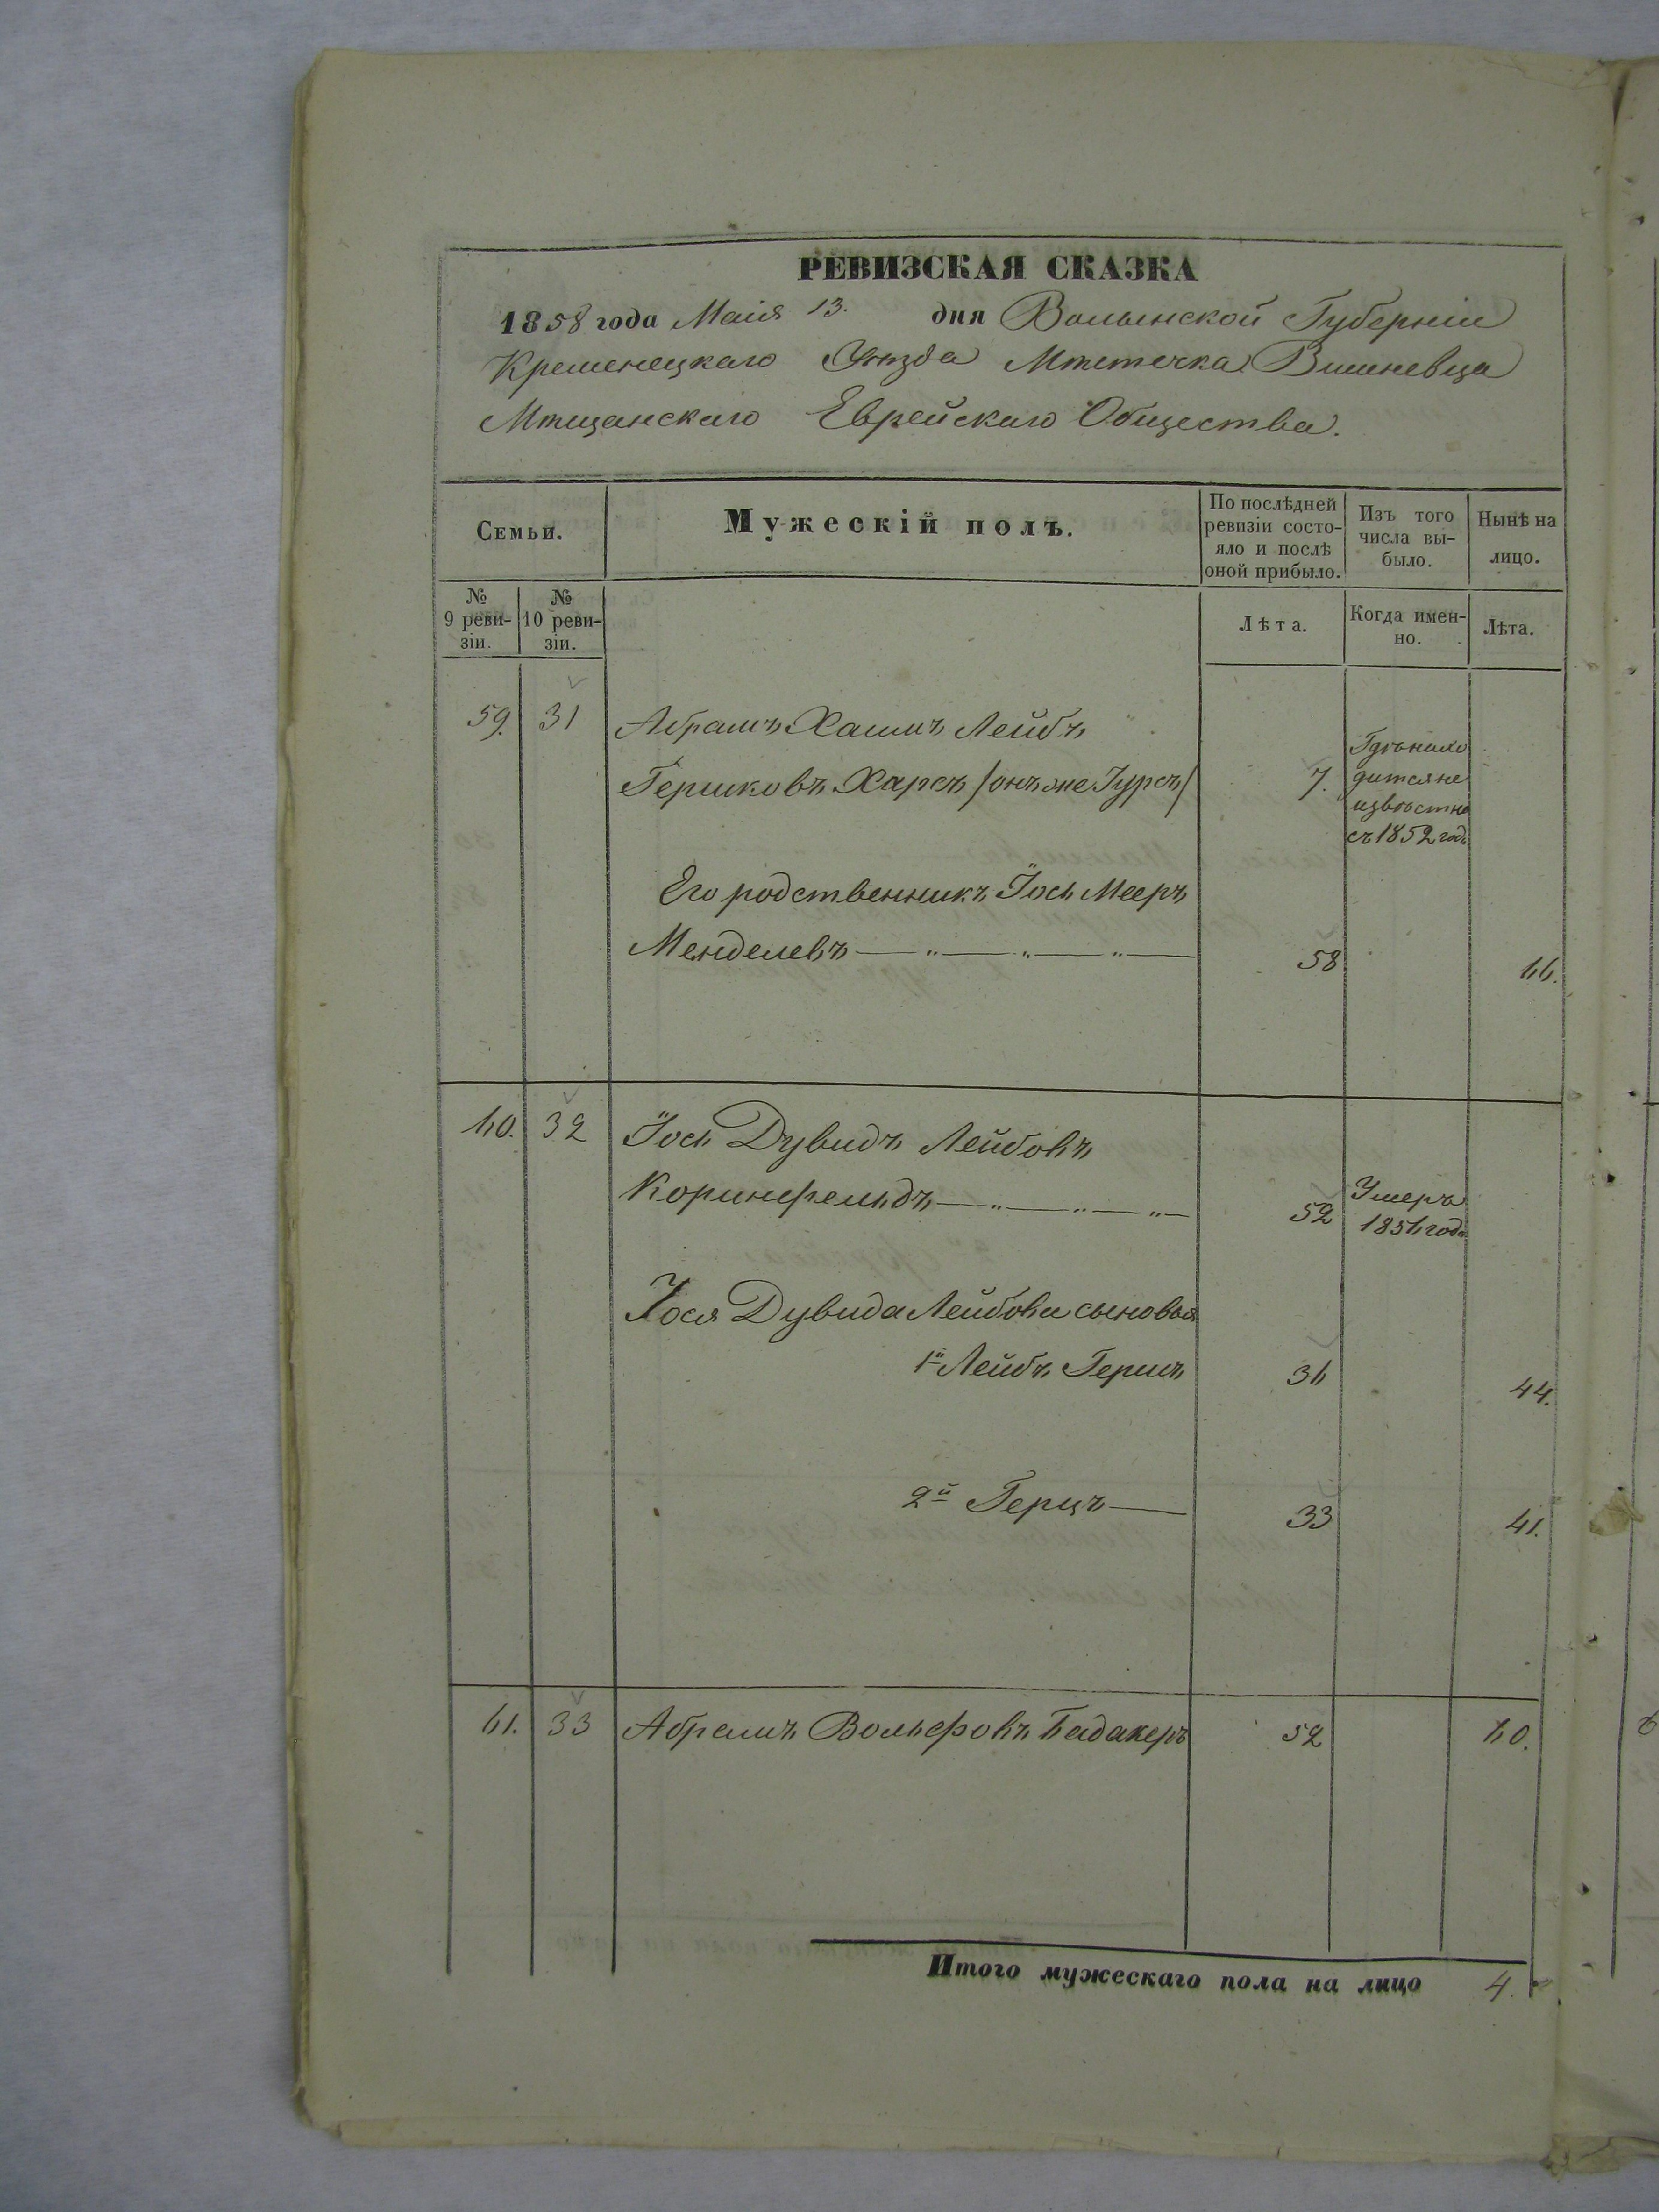 РЕВИЗСКАЯ СКАЗКА
1858 года Маія 13. дня Волынской Губерніи
Кременецкаго Уѣзда Мѣстечка Вишневца
Мѣщанскаго Еврейскаго Общества.
Семьи.
Мужескій полъ.
По послѣдней ревизіи состо-
яло и послѣ
оной прибыло.
Изъ того
числа вы-
было.
Нынѣ на
лицо.
№ 9 реви-
зіи.
№ 10 реви-
зіи.
Лѣта.
Когда имен-
но.
Лѣта.
59. 31 Абрамъ Хаимъ Лейбъ
Гершковъ Харсъ /онъ же Гурсъ/ 7.
Гдѣ нахо
дится не
извѣстно
съ 1852 года
Его родственникъ Іось Мееръ
Менделевъ — „ — „ — „ — 58 66.
60. 32 Іось Дувидъ Лейбовъ
Коринфельдъ — „ — „ — „ — 52 Умеръ
1856 года
Іося Дувида Лейбова сыновья
1й Лейбъ Гершъ 36 44.
2й Герцъ — 33 41.
61. 33 Абрамъ Вольфовъ Бадакеръ 52 60.
Итого мужескаго пола на лицо 4.